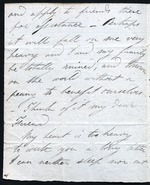 and apply to friends there
for assistance — Perhaps
it will all in one very
heavy and I and my family
be totally ruined, and thrown
on the world without a
penny to benefit ourselves
Think of it my dear
Friend
My heart is too heavy
to write you a long letter
I can neither sleep nor eat